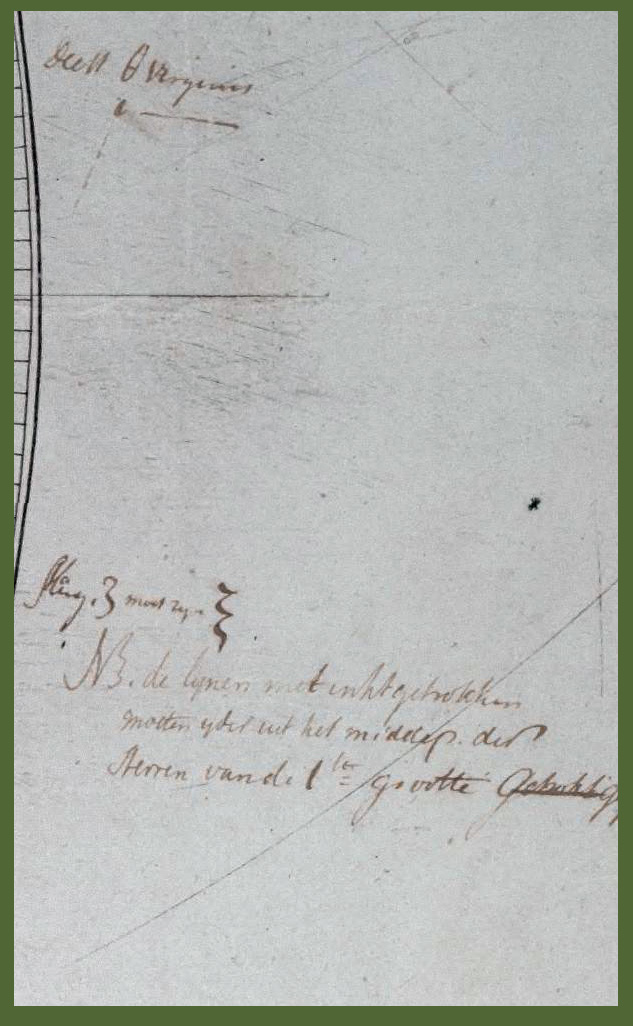 θ Virginis
moet zyn
NB. de lynen met inkt getrokken
moeten yder uit het midden der
sterren van de 1ter grootte